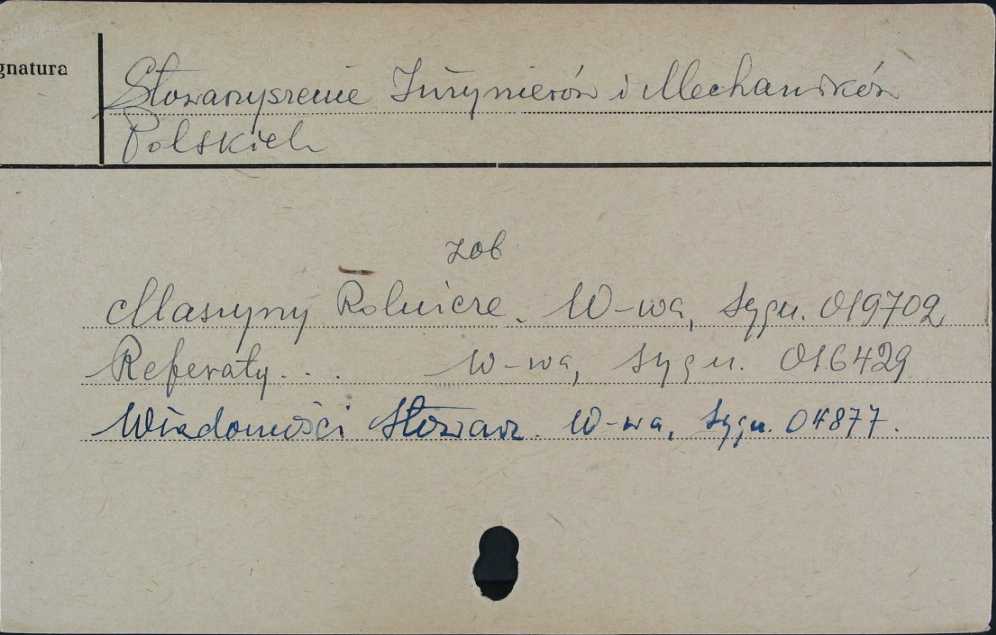 gnatura
Stowarzyszenie Inżynierów i Mechaników
Polskich
zob
Maszyny Rolnicze. W-wa, sygn. 019702
Referaty... W-wa, sygn. 016429
Wiadomości Stowarz. W-wa, sygn. 04877.